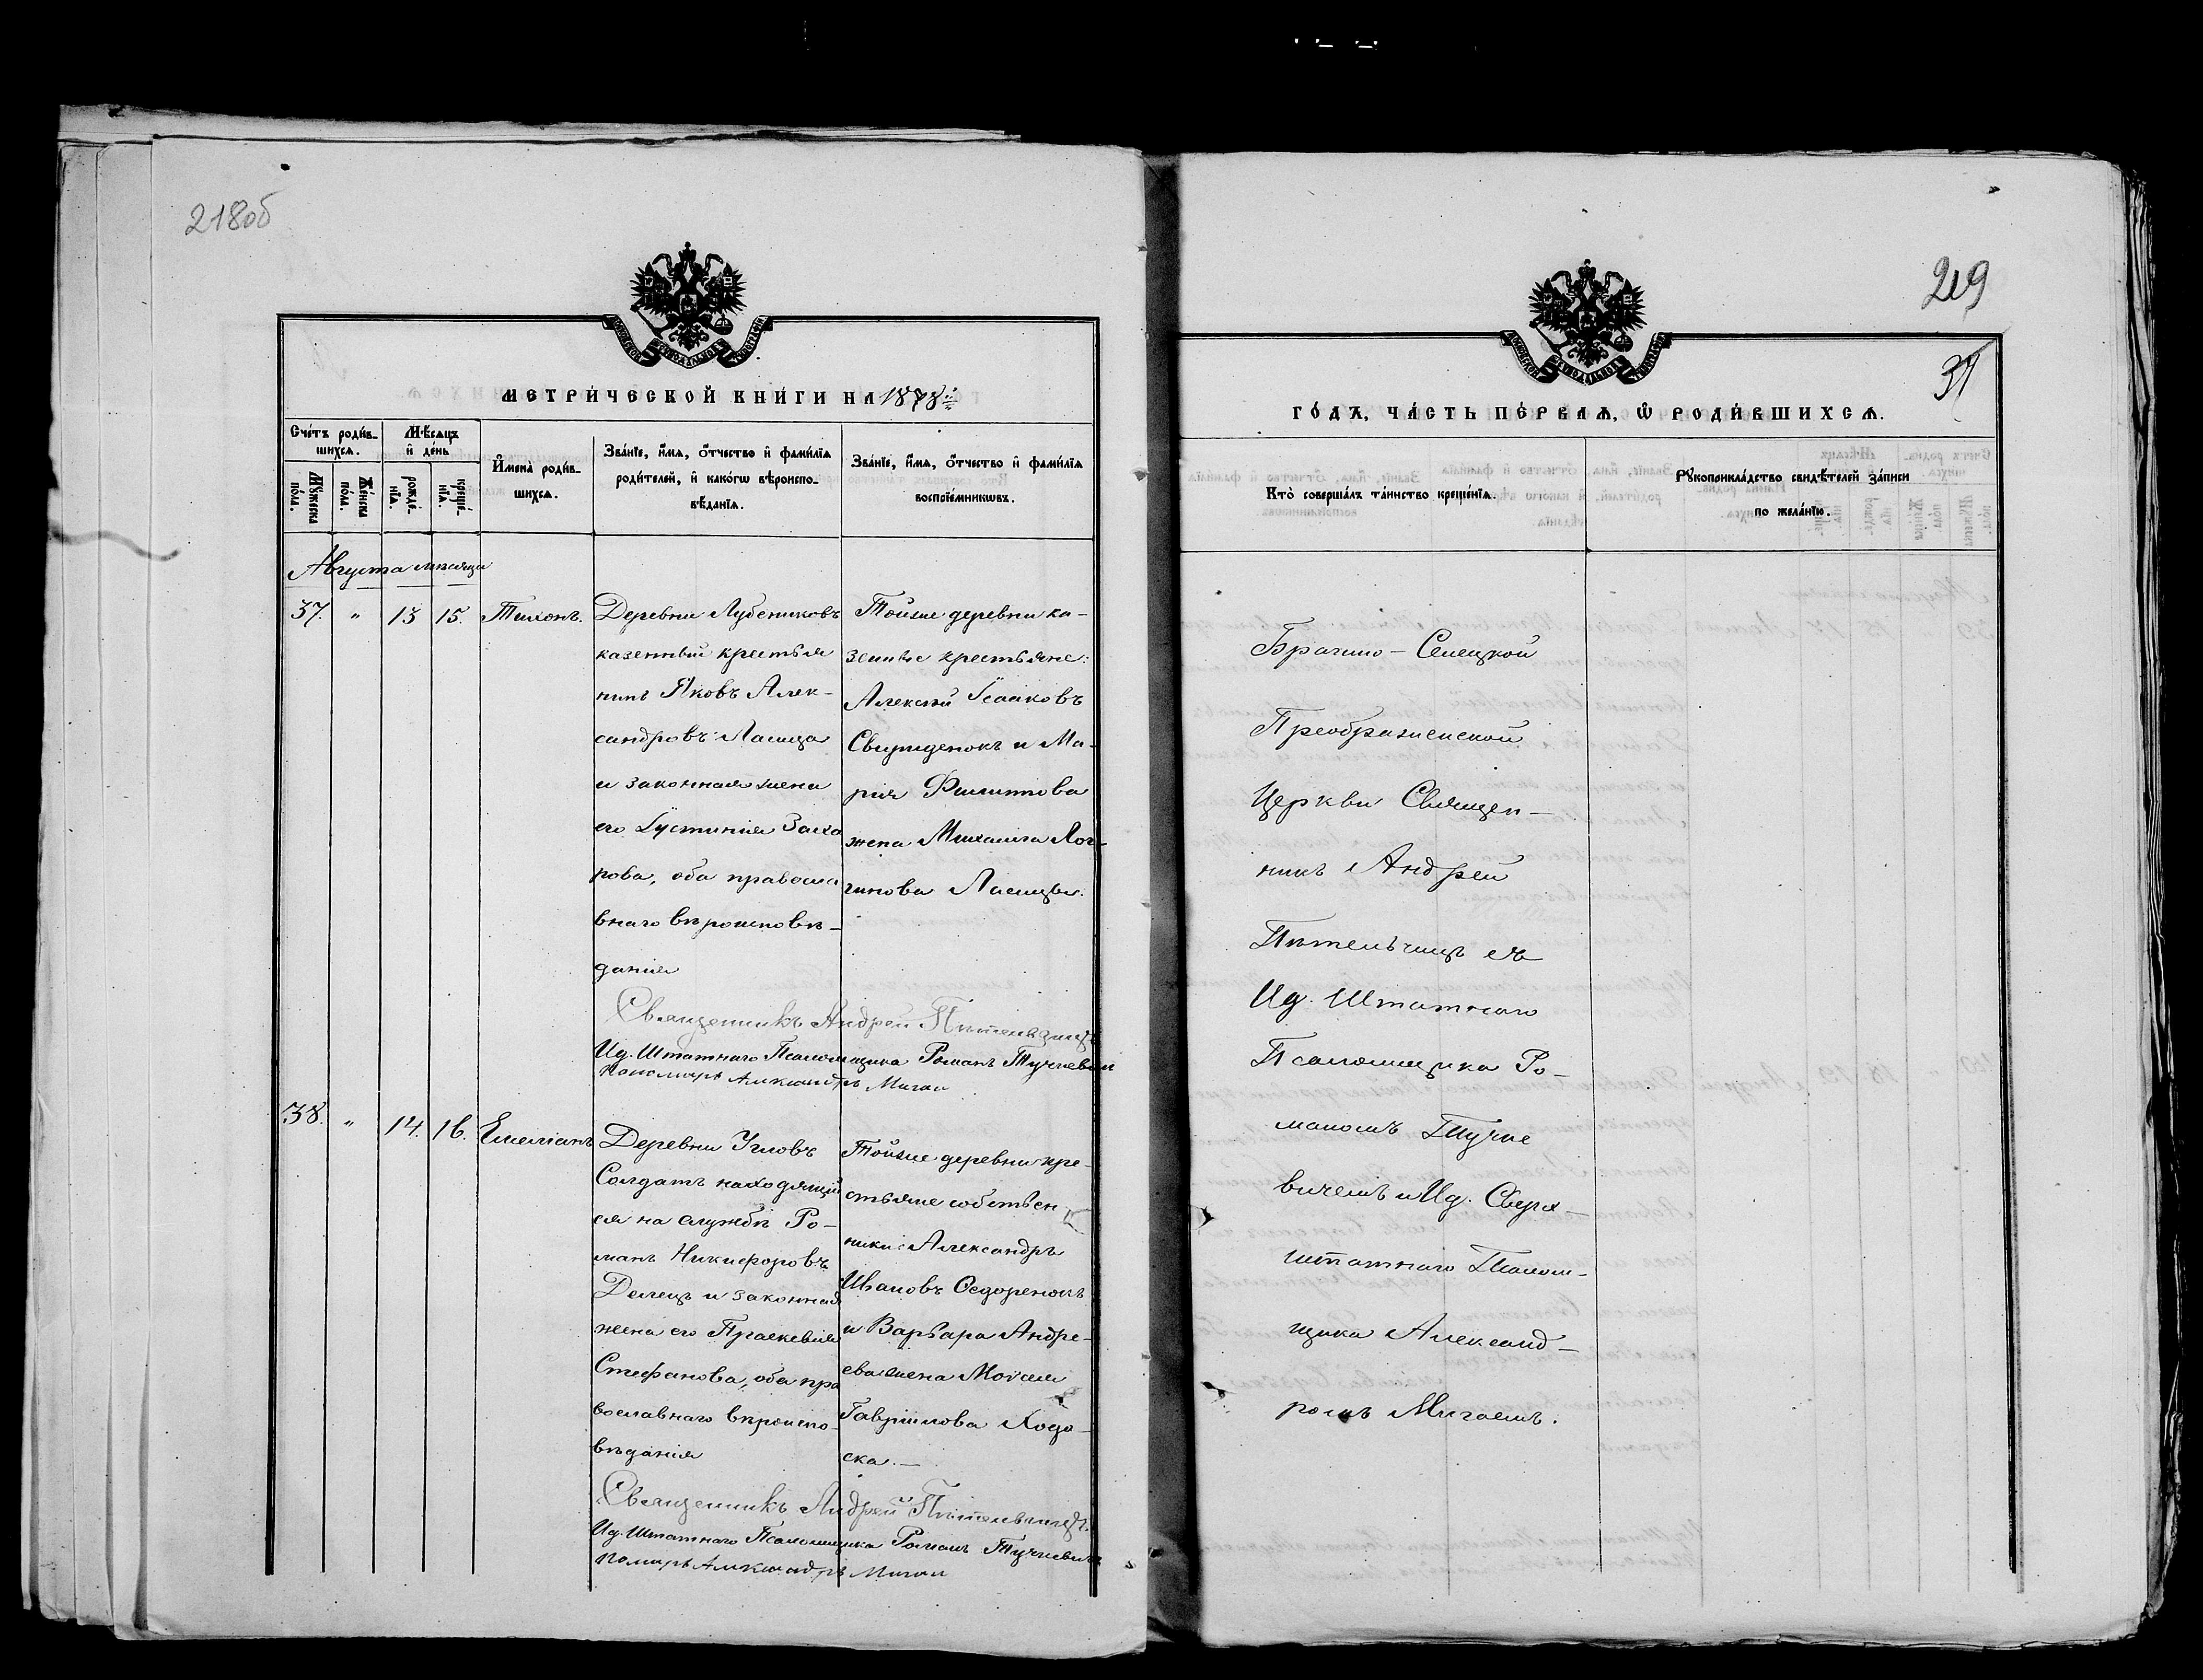 218об
МЕТРИ́ЧЕСКОЙ КНИ́ГИ НА 1878й
Сче́тъ роди́в-
шихсѧ.
Мꙋ́жеска
по́ла.
Же́нска
по́ла.
Мѣ́сѧцъ
и҆ де́нь
рожде́-
нїѧ.
креще́-
нїѧ.
И҆мена̀ роди́в-
шихсѧ.
Зва́нїе, и҆́мѧ, о҆́тчество и҆ фами́лїѧ
роди́телей, и҆ како́гѡ вѣроиспо-
вѣ́данїѧ.
Зва́нїе, и҆́мѧ, о҆́тчество и҆ фами́лїѧ
воспрїе́мникѡвъ.
Августа мѣсяца
37. " 13 15. Тихонъ.
Деревни Лубениковъ
казенный крестья
нинъ Яковъ Алек-
сандровъ Ласица
и законная жена
его Іустинія Заха
рова, оба правосла
внаго вѣроисповѣ-
данія
Тойже деревни ка-
зенные крестьяне:
Алексѣй Ісааковъ
Свириденокъ и Ма-
рія Филиппова
жена Михаила Лог-
гинова Ласицы.
Священникъ Андрей Пѣтельчицъ
Ид. Штатнаго Псаломщика Романъ Тучкевичъ
Пономарь Александръ Мигай
38. " 14. 16. Емеліанъ
Деревни Угловъ
Солдатъ находящій
ся на службѣ Ро-
манъ Никифоровъ
Делецъ и законная
жена его Параскевія
Стефанова, оба пра
вославнаго вѣроиспо-
вѣданія
Тойже деревни кре-
стьяне собствен
ники: Александръ
Ивановъ Ѳедоренокъ
и Варвара Андре-
ева жена Моѵсея
Гавріилова Ходо-
ска.—
Священникъ Андрей Пѣтельчицъ.
Ид. Штатнаго Псаломщика Романъ Тучкевичъ
Помарь Александръ Мигай
219
37
ГО́ДЪ, ЧА́СТЬ ПЕ́РВАѦ, Ѡ҆ РОДИ́ВШИХСѦ.
Кто̀ соверша́лъ та́инство креще́нїѧ.
Рꙋкоприкла́дство свидѣ́телей за́писи
по жела́нїю.
Брагино-Селецкой
Преображенской
Церкви Священ-
никъ Андрей
Пѣтельчицъ съ
Ид. Штатнаго
Псаломщика Ро-
маномъ Тучке
вичемъ и Ид. Сверх-
штатнаго Псалом-
щика Александ-
ромъ Мигаемъ.